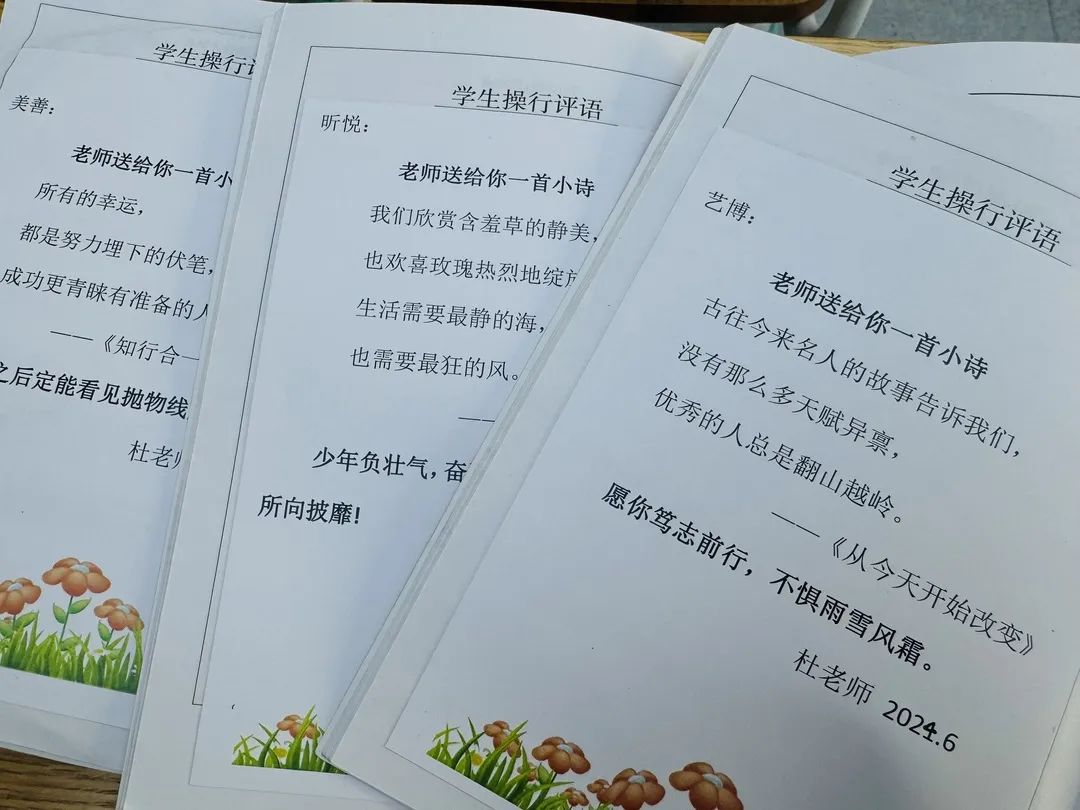 学生操行
美善：
老师送给你一首小
所有的幸运，
都是努力埋下的伏笔，
成功更青睐有准备的人
——《知行合一
之后定能看见抛物线
杜老师
学生操行评语
昕悦：
老师送给你一首小诗
我们欣赏含羞草的静美，
也欢喜玫瑰热烈地绽放
生活需要最静的海，
也需要最狂的风。
—
少年负壮气，奋
所向披靡！
学生操行评语
艺博：
老师送给你一首小诗
古往今来名人的故事告诉我们，
没有那么多天赋异禀，
优秀的人总是翻山越岭。
——《从今天开始改变》
愿你笃志前行，不惧雨雪风霜。
杜老师 2024.6